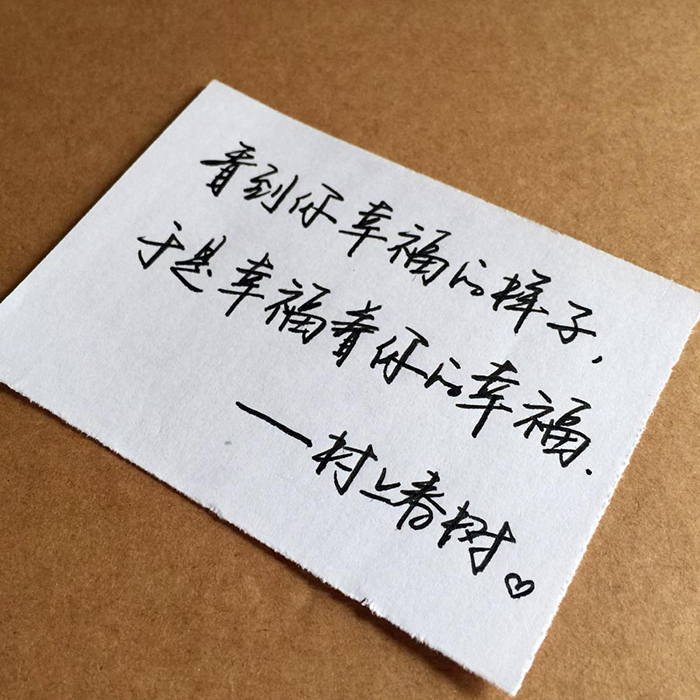 看到你幸福的样子,
于是幸福着你的幸福.
——村上春树。♡